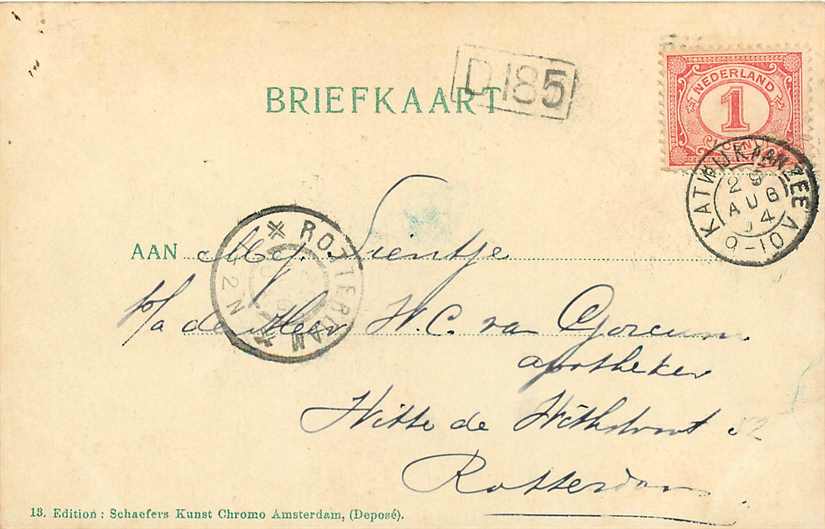 D 185
BRIEFKAART
NEDERLAND
1
CENT
KATWIJK AAN ZEE
29
AUG
04
9-10 V
ROTTERDAM
2 N
AAN Mej. Sientje
p/a de Heer W. C. van Gorcum
apotheker
Witte de Withstraat 52
Rotterdam
13. Edition: Schaefers Kunst Chromo Amsterdam, (Deposé).